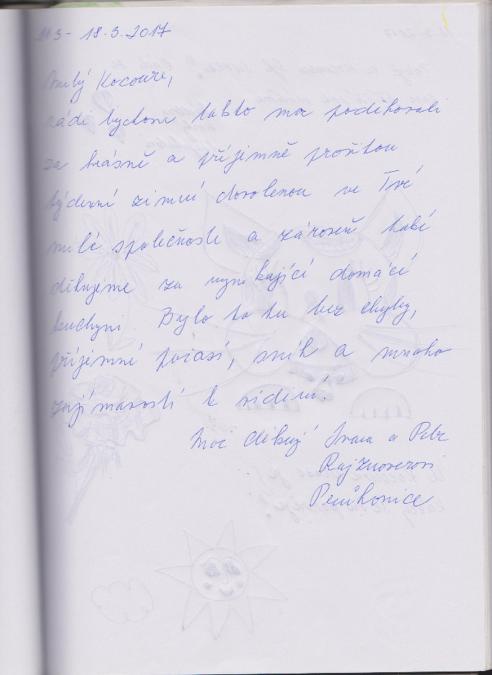 - 18.3.2017
milý Kocoure,
rádi bychom takto moc poděkovali
za krásně a příjemně prožitou
týdenní zimní dovolenou ve Tvé
milé společnosti a zároveň také
děkujeme za vynikající domácí
kuchyni. Bylo to tu bez chyby,
příjemné počasí, sníh a mnoho
zajímavostí k vidění.
Moc děkují Ivana a Petr